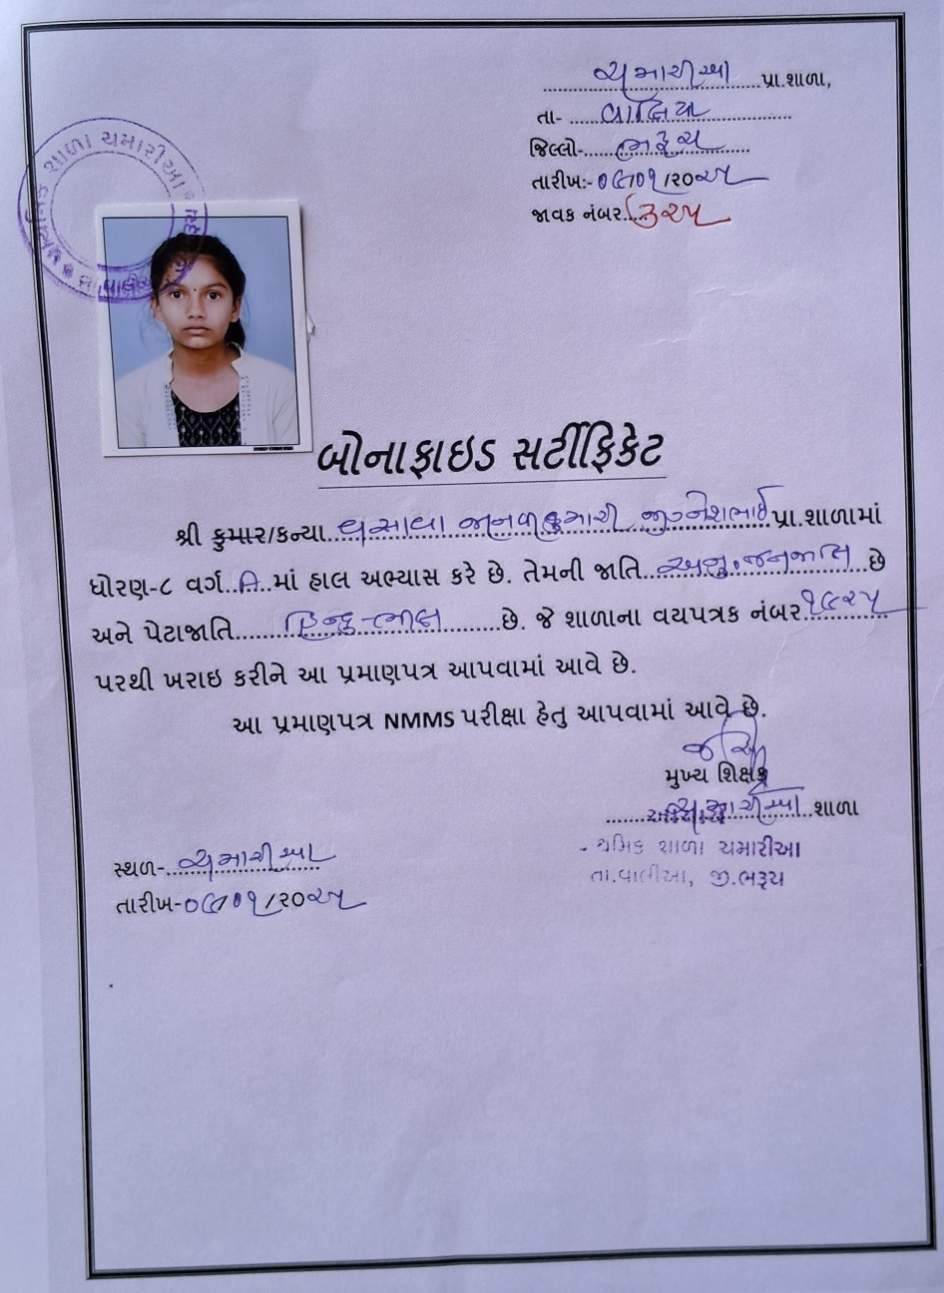 ચમારીઆ પ્રા.શાળા,
તા- વાલિયા
જિલ્લો- ભરૂચ
તારીખ:- ૦૯/૦૧/૨૦૨૫
જાવક નંબર. ૩૨૫
શાળા ચમારીઆ
બોનાફાઇડ સર્ટીફિકેટ
શ્રી કુમાર/કન્યા. વસાવા જીગ્નેશભાઈ પ્રા.શાળામાં
ધોરણ-૮ વર્ગ માં હાલ અભ્યાસ કરે છે. તેમની જાતિ અનુ.જનજાતિ છે
અને પેટાજાતિ હિન્દુ-ભીલ છે. જે શાળાના વયપત્રક નંબર ૧૯૨૫
પરથી ખરાઇ કરીને આ પ્રમાણપત્ર આપવામાં આવે છે.
આ પ્રમાણપત્ર NMMS પરીક્ષા હેતુ આપવામાં આવે છે.
મુખ્ય શિક્ષક
ચમારીઆ શાળા
શાળા ચમારીઆ
તા.વાલીઆ, જી.ભરૂચ
સ્થળ- ચમારીઆ
તારીખ-૦૯/૦૧/૨૦૨૫